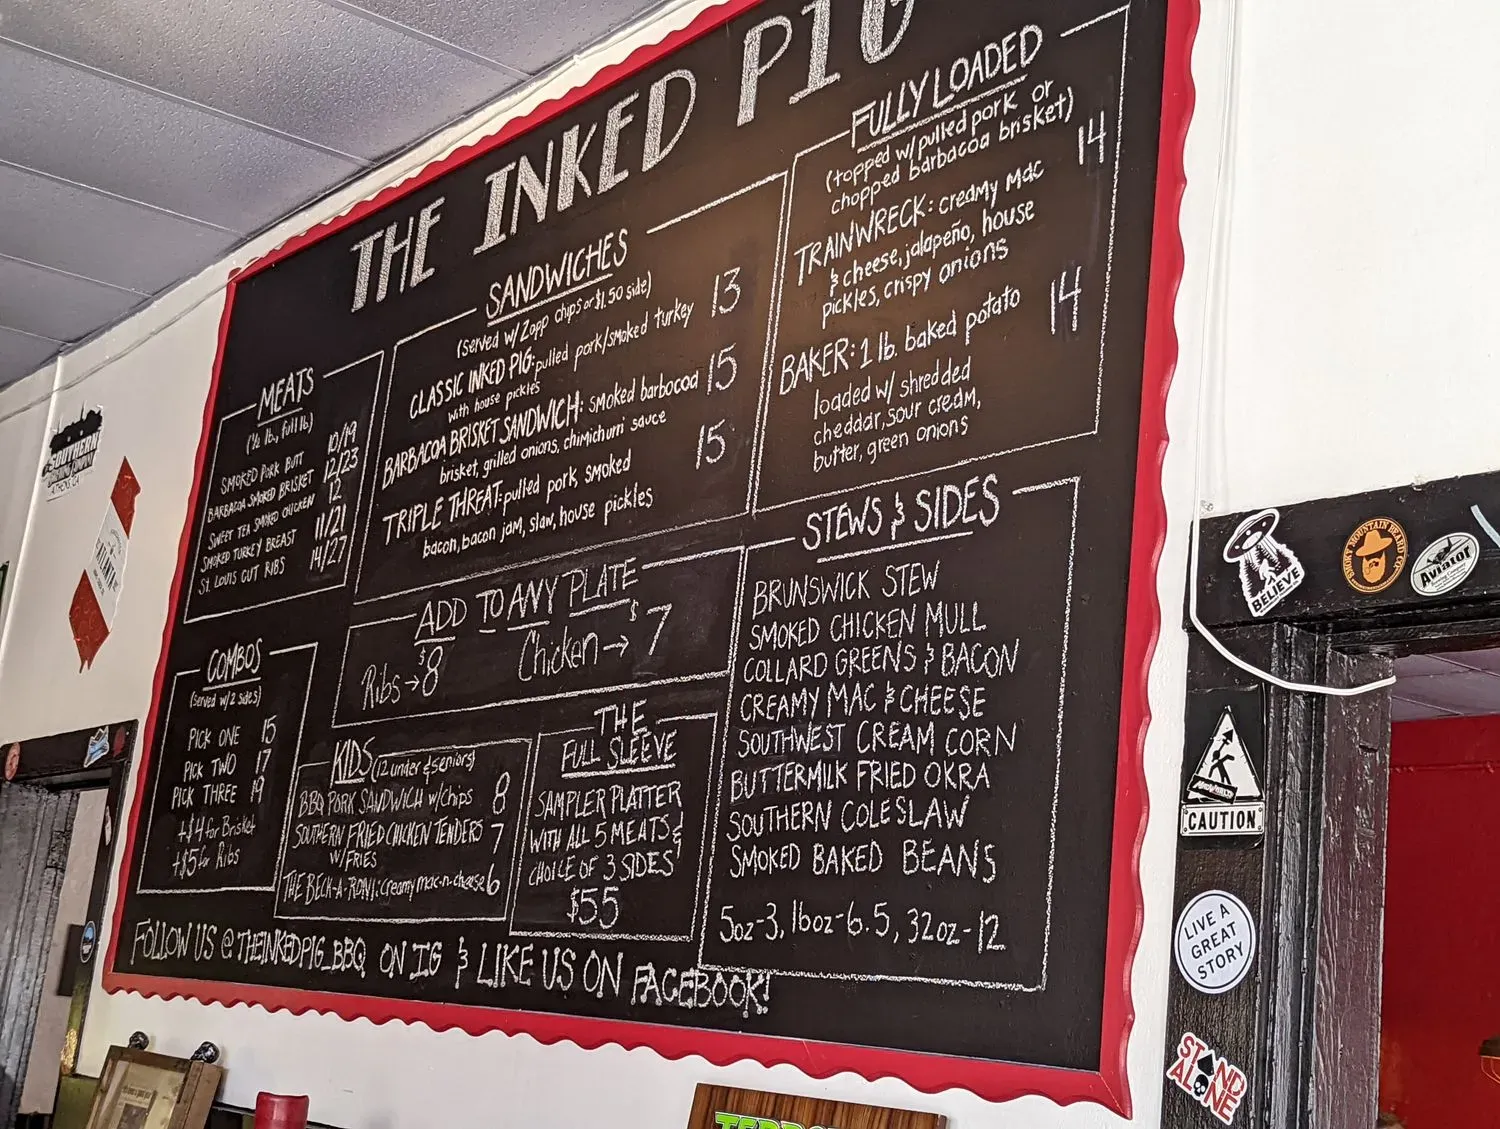 THE INKED PIG
MEATS
(½ lb, full lb)
SMOKED PORK BUTT 10/19
BARBACOA SMOKED BRISKET 12/23
SWEET TEA SMOKED CHICKEN 12
SMOKED TURKEY BREAST 11/21
ST. LOUIS CUT RIBS 14/27
SANDWICHES
(served w/ Zapp chips or $1.50 side)
CLASSIC INKED PIG: pulled pork/smoked turkey 13
with house pickles
BARBACOA BRISKET SANDWICH: smoked barbocoa 15
brisket, grilled onions, chimichurri sauce
TRIPLE THREAT: pulled pork, smoked 15
bacon, bacon jam, slaw, house pickles
FULLY LOADED
(topped w/ pulled pork or
chopped barbacoa brisket)
TRAINWRECK: creamy mac 14
& cheese, jalapeño, house
pickles, crispy onions
BAKER: 1 lb. baked potato 14
loaded w/ shredded
cheddar, sour cream,
butter, green onions
ADD TO ANY PLATE
Ribs → $8 Chicken → $7
COMBOS
(served w/2 sides)
PICK ONE 15
PICK TWO 17
PICK THREE 19
+$4 for Brisket
+$5 for Ribs
KIDS (12 under & seniors)
BBQ PORK SANDWICH w/chips 8
SOUTHERN FRIED CHICKEN TENDERS 7
W/FRIES
THE BECK-A-RONI: creamy mac-n-cheese 6
THE
FULL SLEEVE
SAMPLER PLATTER
WITH ALL 5 MEATS &
CHOICE OF 3 SIDES
$55
STEWS & SIDES
BRUNSWICK STEW
SMOKED CHICKEN MULL
COLLARD GREENS & BACON
CREAMY MAC & CHEESE
SOUTHWEST CREAM CORN
BUTTERMILK FRIED OKRA
SOUTHERN COLESLAW
SMOKED BAKED BEANS
5oz-3, 16oz-6.5, 32oz-12
FOLLOW US @THEINKEDPIG_BBQ ON IG & LIKE US ON FACEBOOK!
SOUTHERN
BELIEVE
SMOKY MOUNTAIN BEARD CO.
Aviator
CAUTION
LIVE A
GREAT
STORY
STAND
ALONE